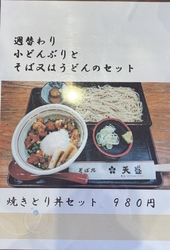 週替わり
小どんぶりと
そば又はうどんのセット
そば処 天益
焼きとり丼セット 980円